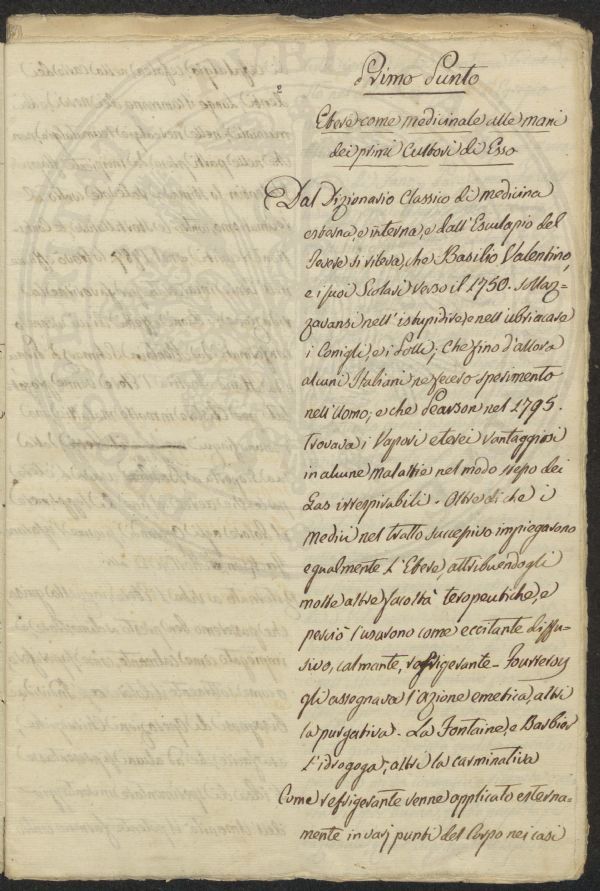 Primo Punto
Etere come medicinale alle mani
dei primi Cultori di Esso
Dal Dizionario Classico di medicina
esterna, e interna, e dall'Esculapio del
si rileva, che Basilio Valentino,
e i suoi Scolari verso il 1750. sollaz=
zavansi nell'istupidire, e nell'ubriacare
i Conigli, e i Polli; che fino d'allora
alcuni Italiani ne fecero sperimento
nell'Uomo; e che Pearson nel 1795.
trovava i Vapori eterei vantaggiosi
in alcune malattie nel modo stesso dei
Gas irrespirabili. Oltre di che i
medici nel tratto successivo impiegarono
egualmente l'Etere, attribuendogli
molte altre facoltà terapeutiche, e
perciò l'usarono come eccitante diffu=
sivo, calmante, rafrigerante - Fourreroy
gli assegnava l'azione emetica, altri
la purgativa. La Fontaine, e Barbier
l'idrogoga, altri la carminativa
Come refrigerante venne applicato esterna=
mente in varj punti del Corpo nei casi